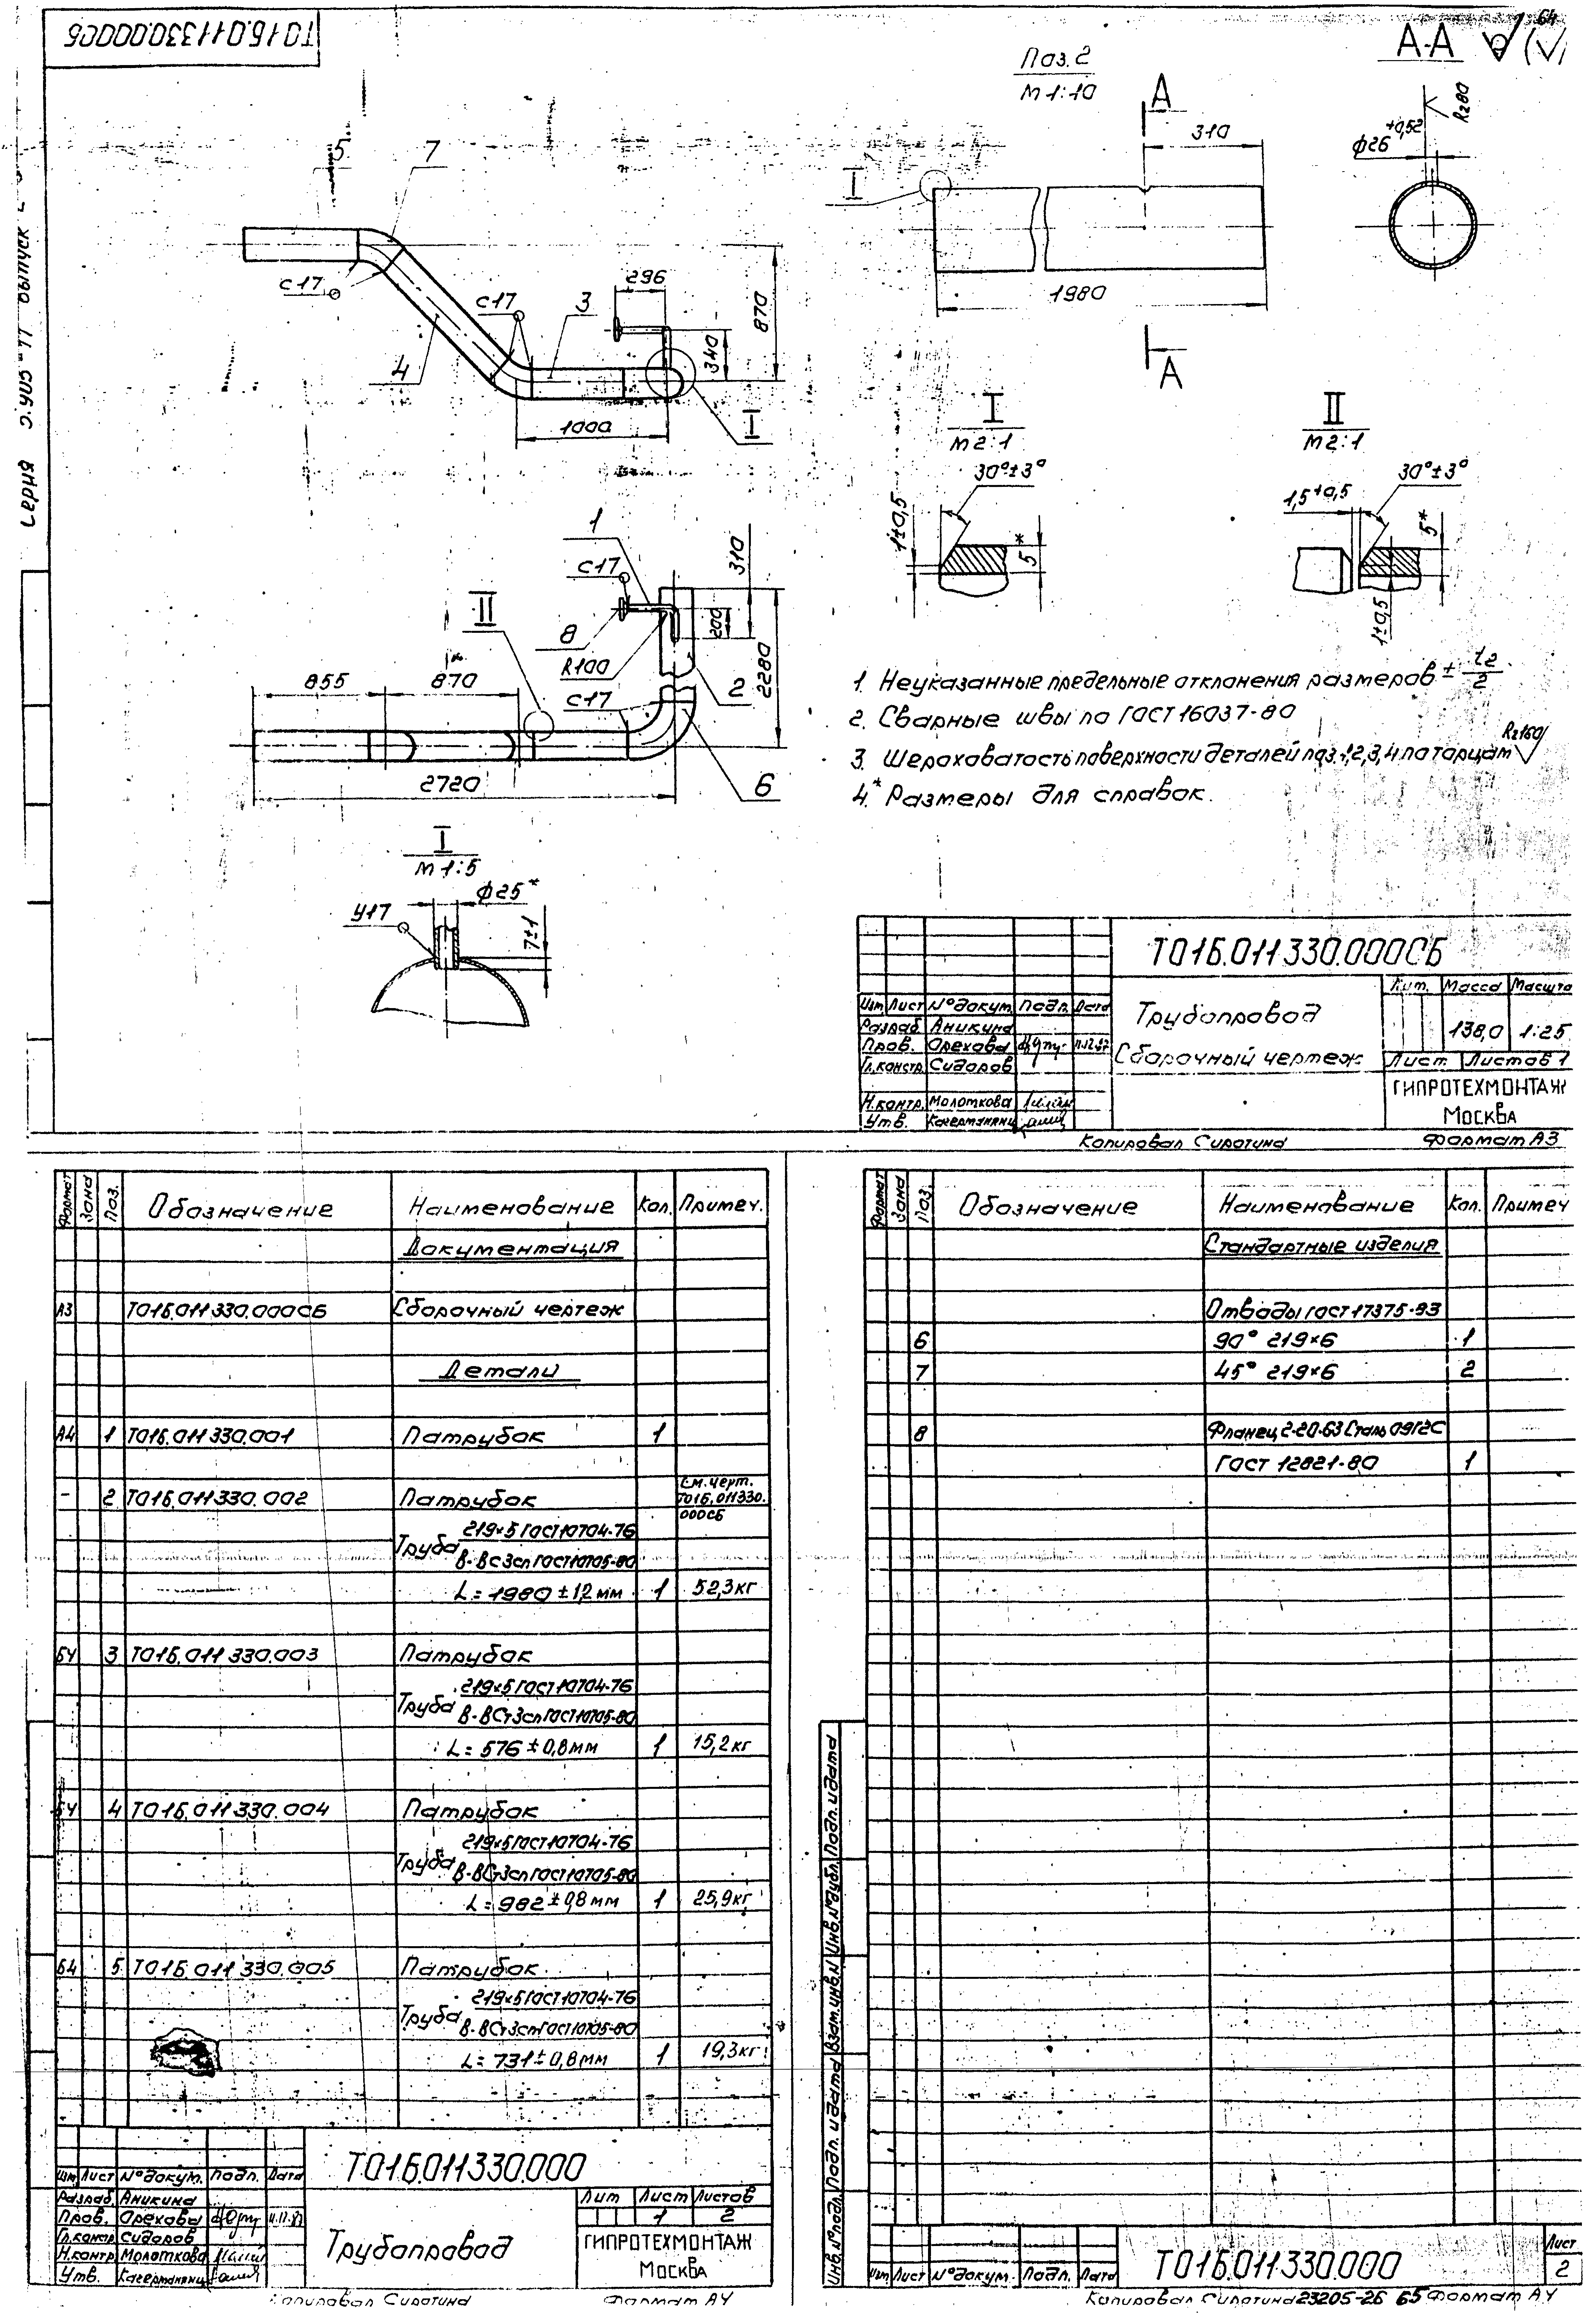 Т01Б.011.330.000СБ
64
А-А
Поз.2
М 1:10
А
310
Rz80
ф26 +0,52
I
1980
А
5
7
с17
с17
3
296
340
870
4
1000
I
I
М 2:1
30°±3°
1±0,5
5*
II
М 2:1
1,5+0,5
30°±3°
5*
1±0,5
1
с17
310
II
8
R100
200
2280
2
с17
855
870
2720
6
1. Неуказанные предельные отклонения размеров ± t2/2
2. Сварные швы по ГОСТ 16037-80
3. Шероховатость поверхности деталей поз.1,2,3,4 по торцам Rz160
4.* Размеры для справок.
I
М 1:5
У17
ф25*
7±1
Т01Б.011.330.000СБ
Лит. Масса Масшта
Изм Лист № докум. Подп. Дата
Трубопровод
Сборочный чертеж
138,0 1:25
Разраб. Аникина
Пров. Орехова
Гл.констр. Сидоров
Лист Листов 1
Н.контр. Молоткова
Утв.
ГИПРОТЕХМОНТАЖ
Москва
Копировал Сиротина Формат А3
Формат Зона Поз. Обозначение Наименование Кол. Примеч.
Документация
А3 Т01Б.011.330.000СБ Сборочный чертеж
Детали
А4 1 Т01Б.011.330.001 Патрубок 1
- 2 Т01Б.011.330.002 Патрубок См.черт. Т01Б.011.330. 000СБ
Труба 219×5 ГОСТ 10704-76
В-ВСт3сп ГОСТ 10705-80
L=1980±1,2 мм 1 52,3 кг
БЧ 3 Т01Б.011.330.003 Патрубок
Труба 219×5 ГОСТ 10704-76
В-ВСт3сп ГОСТ 10705-80
L=576±0,8 мм 1 15,2 кг
БЧ 4 Т01Б.011.330.004 Патрубок
Труба 219×5 ГОСТ 10704-76
В-ВСт3сп ГОСТ 10705-80
L=982±0,8 мм 1 25,9 кг
БЧ 5 Т01Б.011.330.005 Патрубок
Труба 219×5 ГОСТ 10704-76
В-ВСт3сп ГОСТ 10705-80
L=731±0,8 мм 1 19,3 кг
Т01Б.011.330.000
Изм Лист № докум. Подп. Дата
Разраб. Аникина
Пров. Орехова
Гл.констр Сидоров
Н.контр. Молоткова
Утв.
Трубопровод
Лит Лист Листов
1 2
ГИПРОТЕХМОНТАЖ
Москва
Копировал Сиротина Формат А4
Формат Зона Поз. Обозначение Наименование Кол. Примеч
Стандартные изделия
Отводы ГОСТ 17375-83
6 90° 219×6 1
7 45° 219×6 2
8 Фланец 2-20-63 Сталь 09Г2С
ГОСТ 12821-80 1
Инв.№ подл. Подп. и дата Взам.инв.№ Инв.№ дубл. Подп. и дата
Изм Лист № докум. Подп. Дата
Т01Б.011.330.000
Лист
2
Копировал Сиротина 23205-26 65 Формат А4